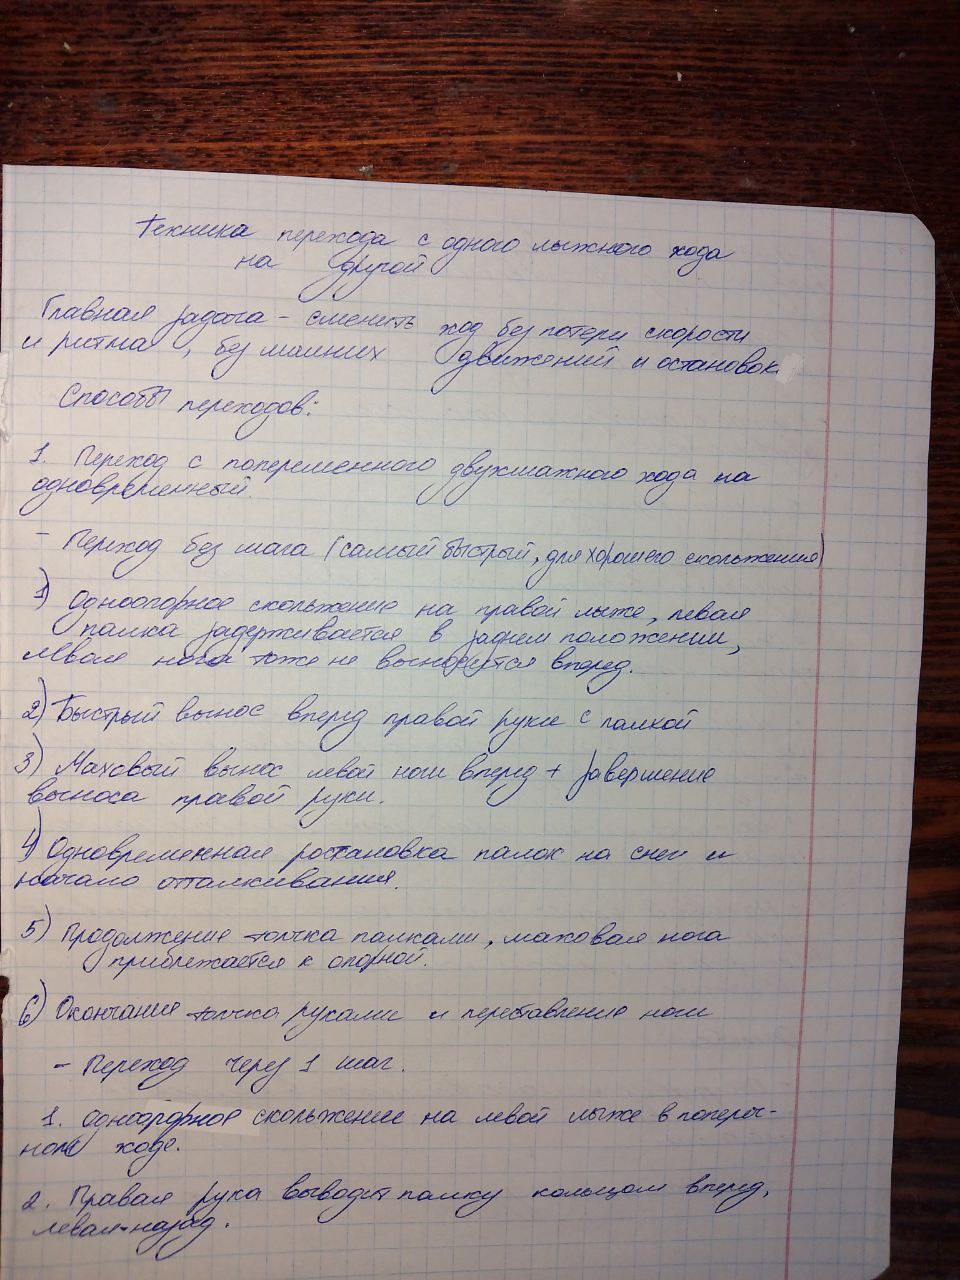 Техника перехода с одного лыжного хода
на другой
Главная задача - сменить ход без потери скорости
и ритма, без лишних движений и остановок
Способы переходов:
1. Переход с попеременного двухшажного хода на
одновременный.
- Переход без шага (самый быстрый, для хорошего скольжения)
1) Одноопорное скольжение на правой лыже, левая
палка задерживается в заднем положении,
левая нога тоже не выносится вперед.
2) Быстрый вынос вперед правой руки с палкой
3) Маховый вынос левой ноги вперед + завершение
выноса правой руки.
4) Одновременная постановка палок на снег и
начало отталкивания.
5) Продолжение толчка палками, маховая нога
приближается к опорной.
6) Окончание толчка руками и переставление ноги
- Переход через 1 шаг.
1. Одноопорное скольжение на левой лыже в попереч-
ном ходе.
2. Правая рука выводит палку кольцом вперед,
левая-назад.